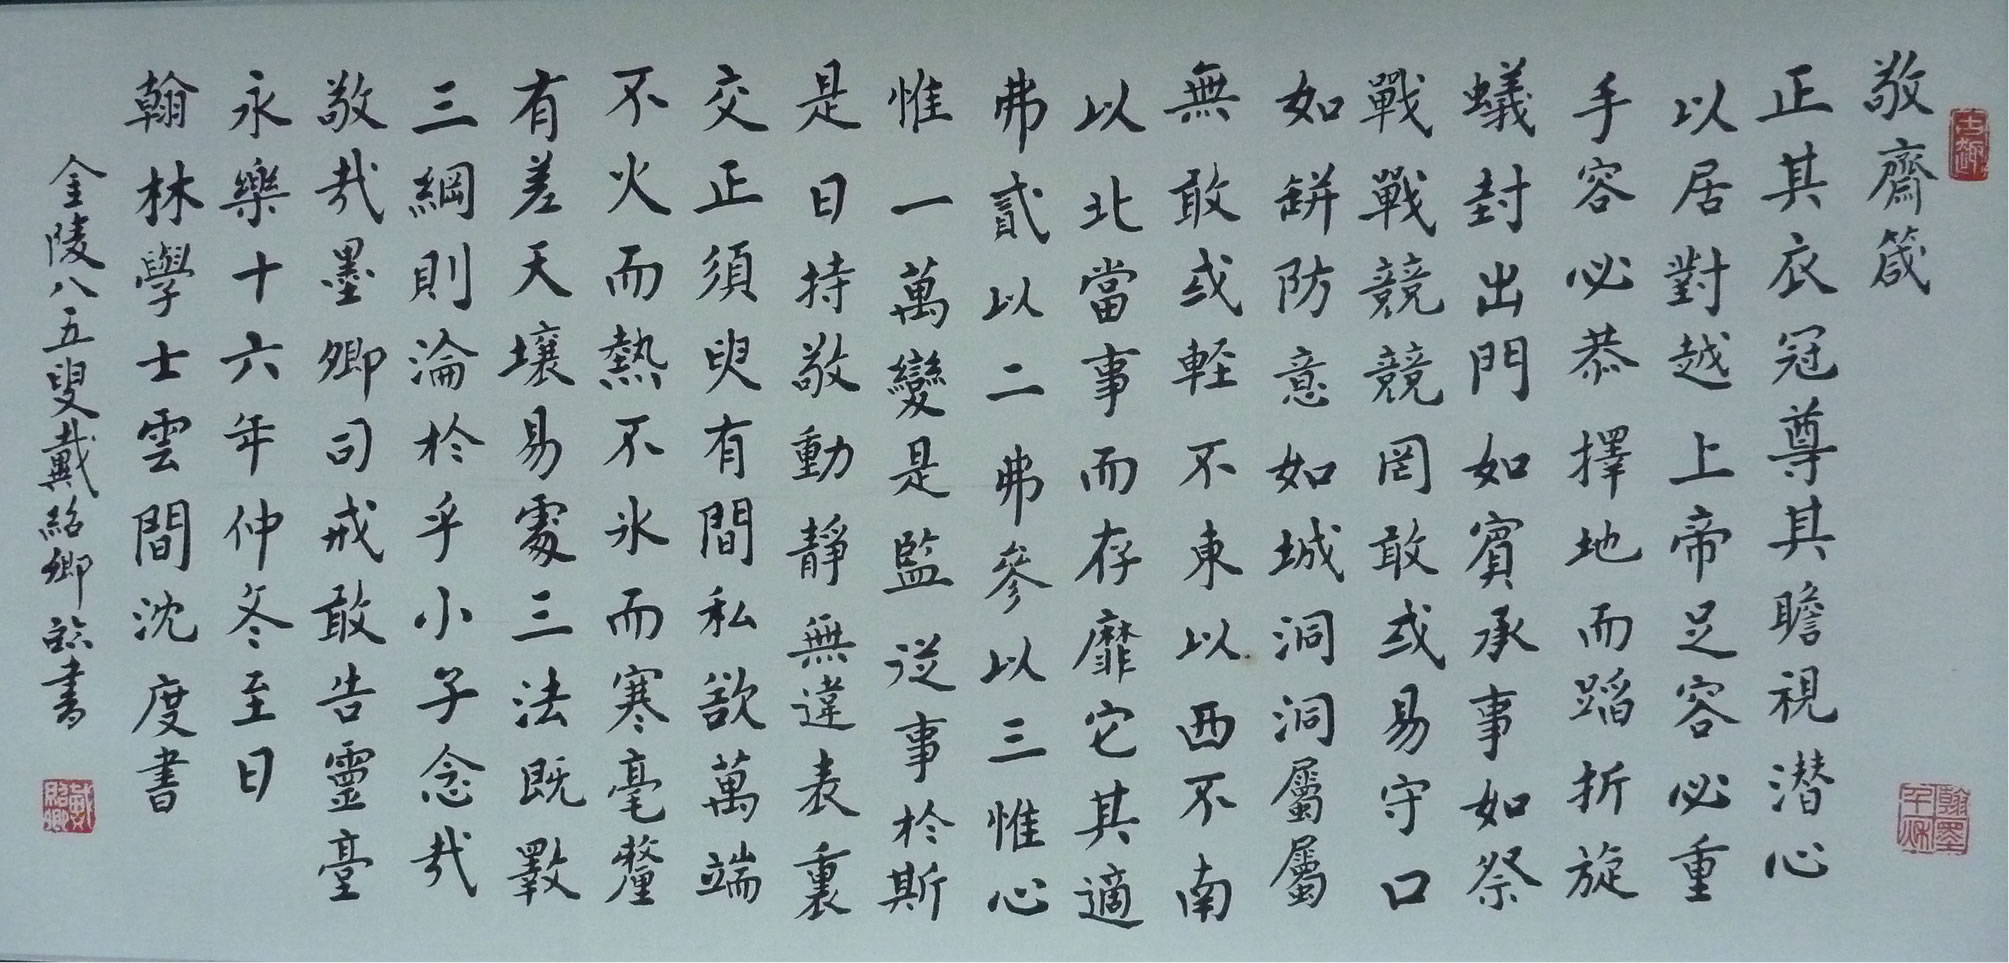 敬齋箴
正其衣冠尊其瞻視潜心
以居對越上帝足容必重
手容必恭擇地而蹈折旋
蟻封出門如賓承事如祭
戰戰競競罔敢或易守口
如缾防意如城洞洞屬屬
無敢或軽不東以西不南
以北當事而存靡它其適
弗貳以二弗參以三惟心
惟一萬變是監從事於斯
是日持敬動靜無違表裏
交正須臾有間私欲萬端
不火而熱不氷而寒毫釐
有差天壤易處三法既斁
三綱則淪於乎小子念哉
敬哉墨卿司戒敢告靈臺
永樂十六年仲冬至日
翰林學士雲間沈度書
金陵八五叟戴紹卿臨書
古趣
翰墨千秋
戴紹卿